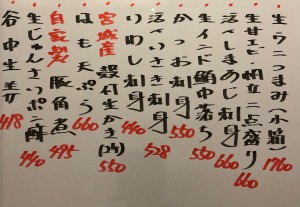 生うにつまみ(小箱)1760
生甘エビ・帆立二点盛り660
活〆しまあじ刺身660
生インド鮪中落ち550
かつおき刺身550
活〆いさき刺身528
いわし刺身440
宮城産殻付生かき(2ケ)550
はも天ぷら660
自家製豚角煮495
生じゅんさいポン酢440
谷中生姜418